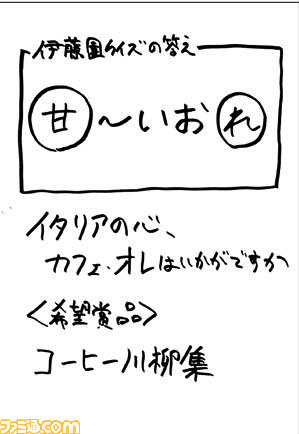 伊藤園クイズの答え
甘〜いおれ
イタリアの心、
カフェ・オレはいかがですか
<希望賞品>
コーヒー川柳集
ファミ通.com